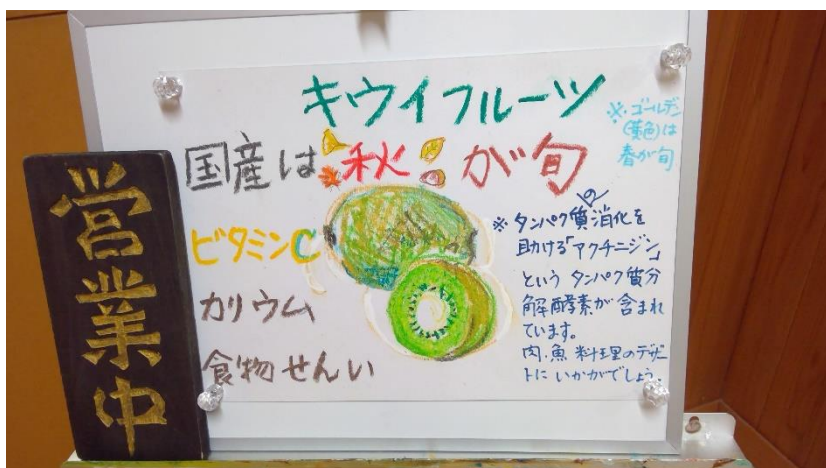 キウイフルーツ
※ゴールデン
(黄色)は
春が旬
国産は秋が旬
ビタミンC
カリウム
食物せんい
※タンパク質の消化を
助ける「アクチニジン」
という タンパク質分
解酵素が含まれ
ています。
肉・魚料理のデザー
トにいかがでしょう。
営業中